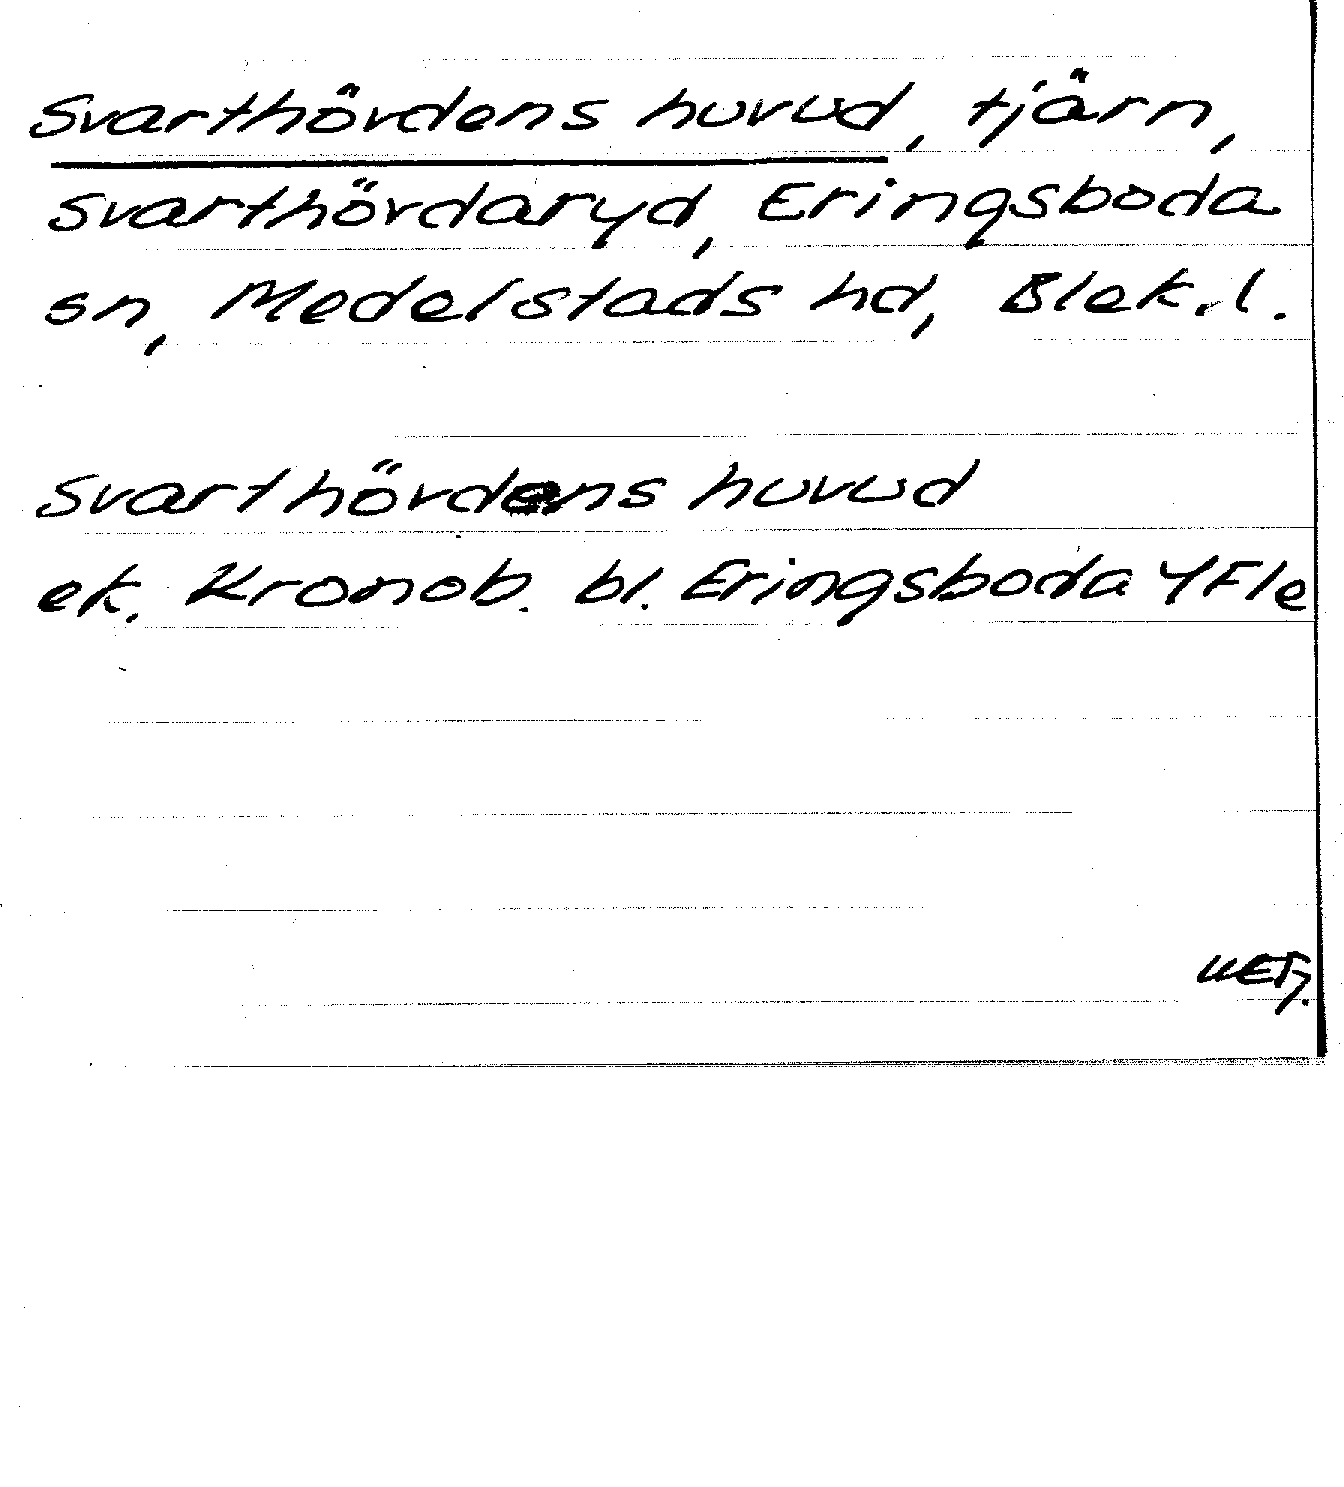 Svarthövdens huvud, tjärn,
Svarthövdaryd, Eringsboda
sn, Medelstads hd, Blek.l.
Svarthövdens huvud
ek. Kronob. bl. Eringsboda YFle